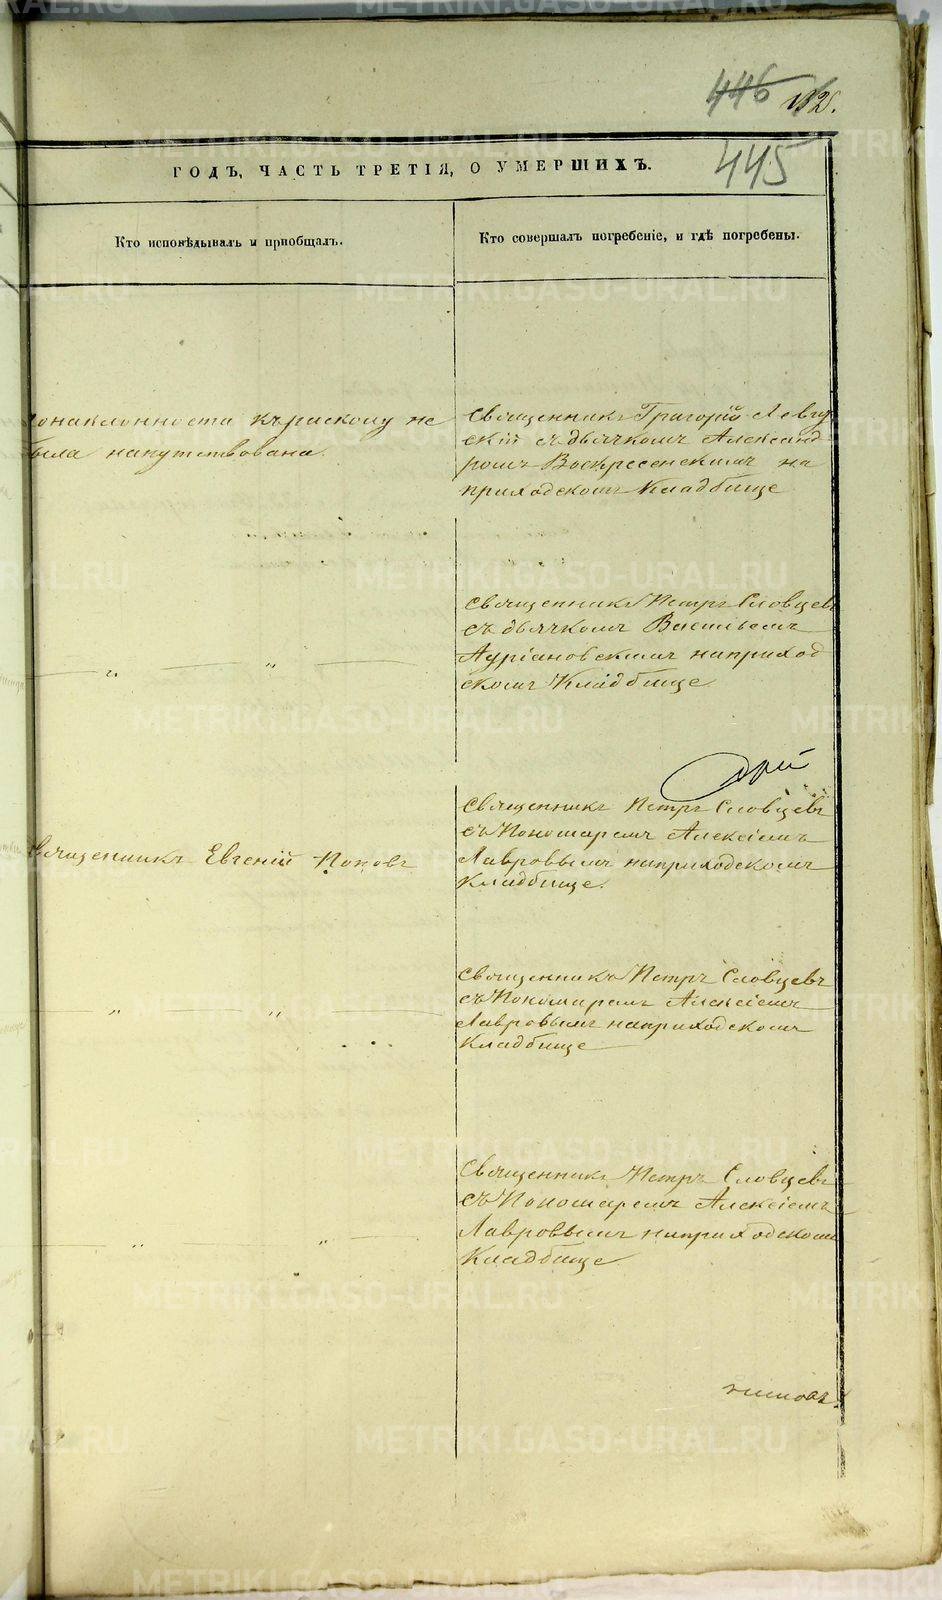 446
445
ГОДЪ, ЧАСТЬ ТРЕТІЯ, О УМЕРШИХЪ.
Кто исповѣдывалъ и пріобщалъ.
Кто совершалъ погребеніе, и гдѣ погребены.
къ раскому не
была напутствована.
Священникъ Григорій Левиц
скій съ дьячкомъ Александ
ромъ Воскресенскимъ на
приходскомъ Кладбище
Священникъ Петръ Словцевъ
съ дьячкомъ Васильемъ
Адріановскимъ наприход
скомъ Кладбище.
Священникъ Евгеній Поповъ
Священникъ Петръ Словцевъ
съ Пономаремъ Алексіемъ
Лавровымъ наприходскомъ
Кладбище.
Священникъ Петръ Словцевъ
съ Пономаремъ Алексіемъ
Лавровымъ наприходскомъ
Кладбище
Священникъ Петръ Словцевъ
съ Пономаремъ Алексіемъ
Лавровымъ наприходскомъ
Кладбище
METRIKI.GASO-URAL.RU